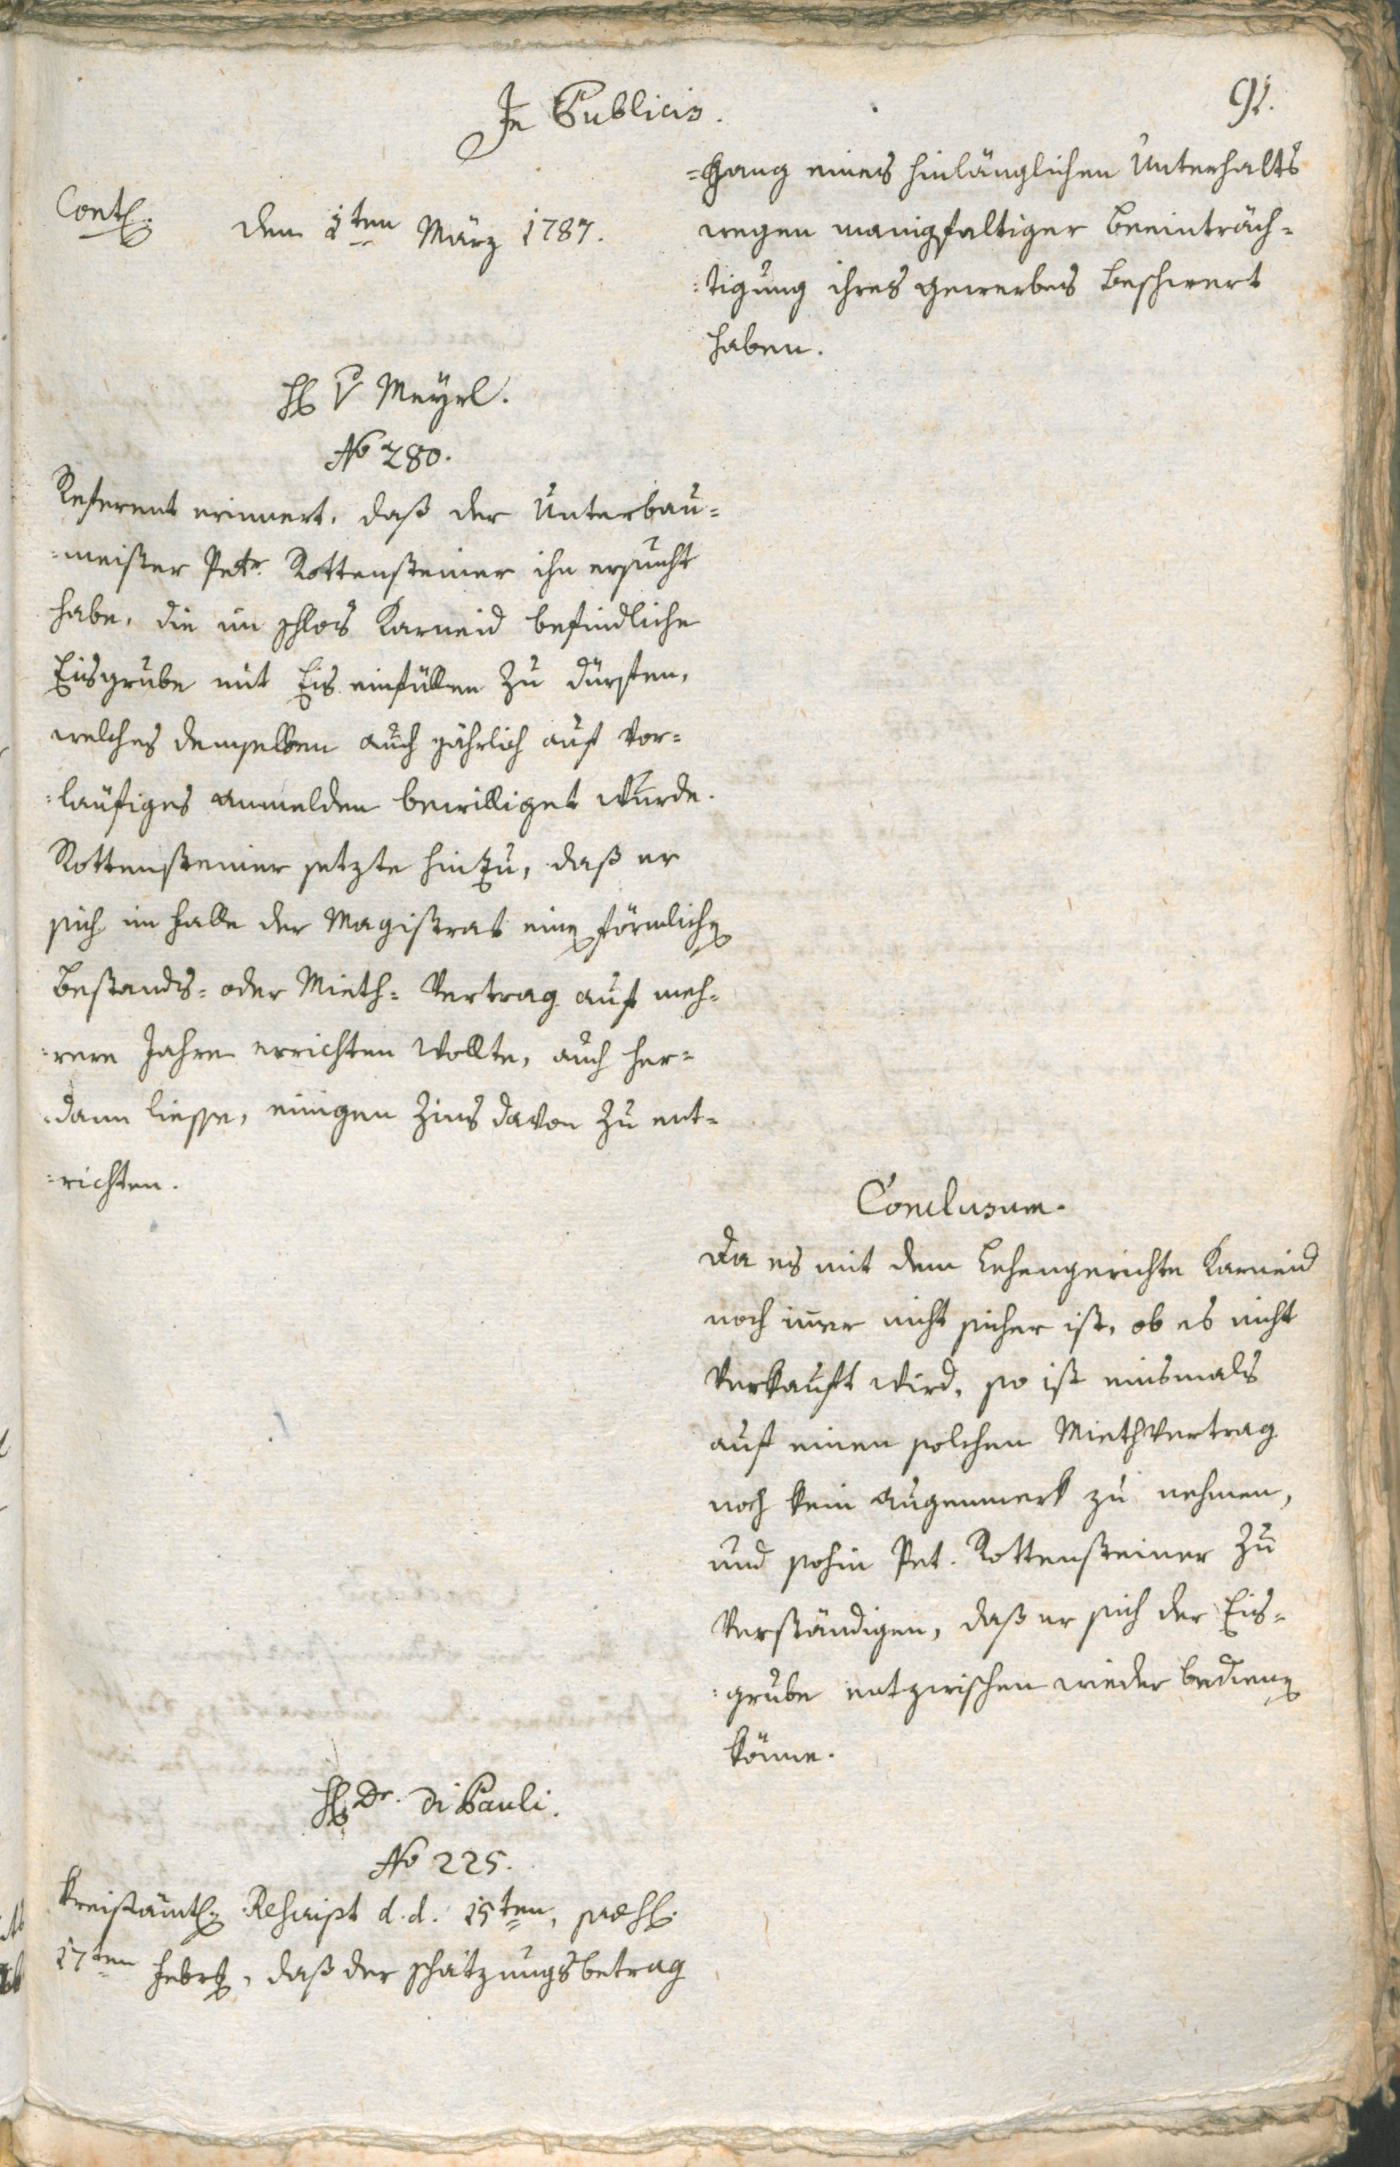 In Publicis.
91.
Cont.
den 1ten März 1787.
=gang eines hinlänglichen Unterhalts
wegen manigfaltiger Beeinträch=
=tigung ihres Gewerbes beschwert
haben.
H v Meyrl.
No 280.
Referent erinnert, daß der Unterbau=
=meister Petr. Rottensteiner ihn ersucht
habe, die im Schlos Karneid befindliche
Eisgrube mit Eis einfüllen zu dürfen,
welches demselben auch jährlich auf vor=
=läufiges Anmelden bewilliget wurde.
Rottensteiner setzte hinzu, daß er
sich im Falle der Magistrat einen förmlichen
Bestands= oder Mieth= Vertrag auf meh=
=rere Jahre errichten wollte, auch her=
=dann liesse, einigen Zins davon zu ent=
=richten.
Conclusum.
Da es mit dem Lehengerichte Karneid
noch immer nicht sicher ist, ob es nicht
verkauft wird, so ist einsmals
auf einen solchen Miethvertrag
noch kein Augenmerk zu nehmen,
und sohin Pet. Rottensteiner zu
verständigen, daß er sich der Eis=
=grube entzwischen wieder bedienen
könne.
H Dr. Di Pauli.
No 225.
Kreisämtl. Rescript d. d. 15ten, præs.
17ten Febr, daß der Schätzungsbetrag